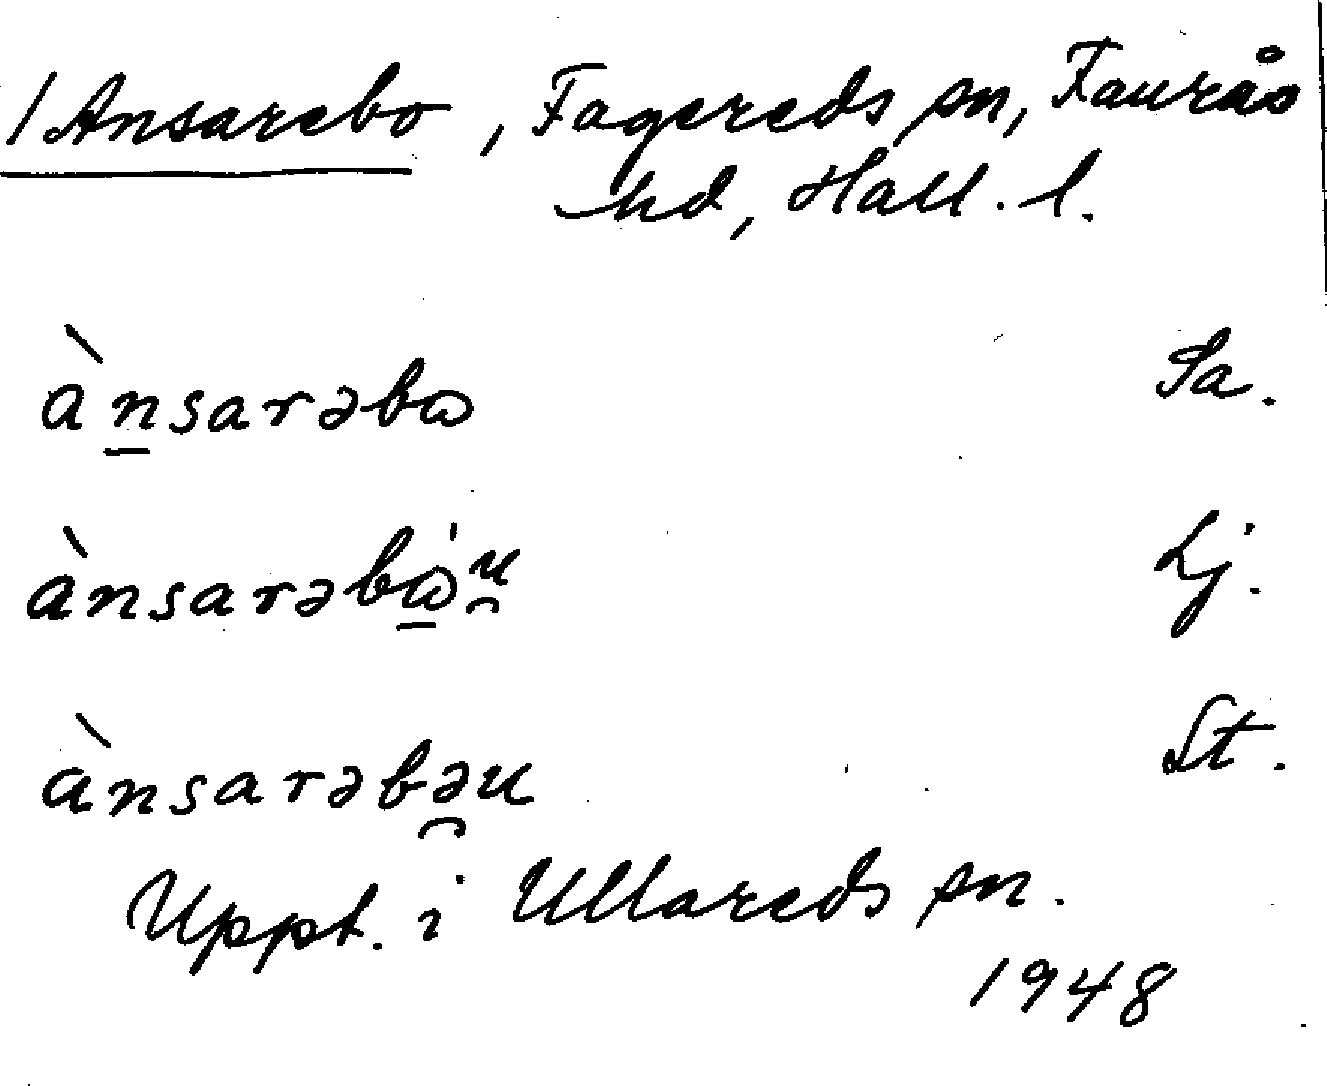 /Ansarebo, Fagereds sn, Faurås
hd, Hall. l.
ànsarəbω Sa.
ànsarəbὼu̯ Lj.
ànsarəbə̯u St.
Uppt. i Ullareds sn.
1948